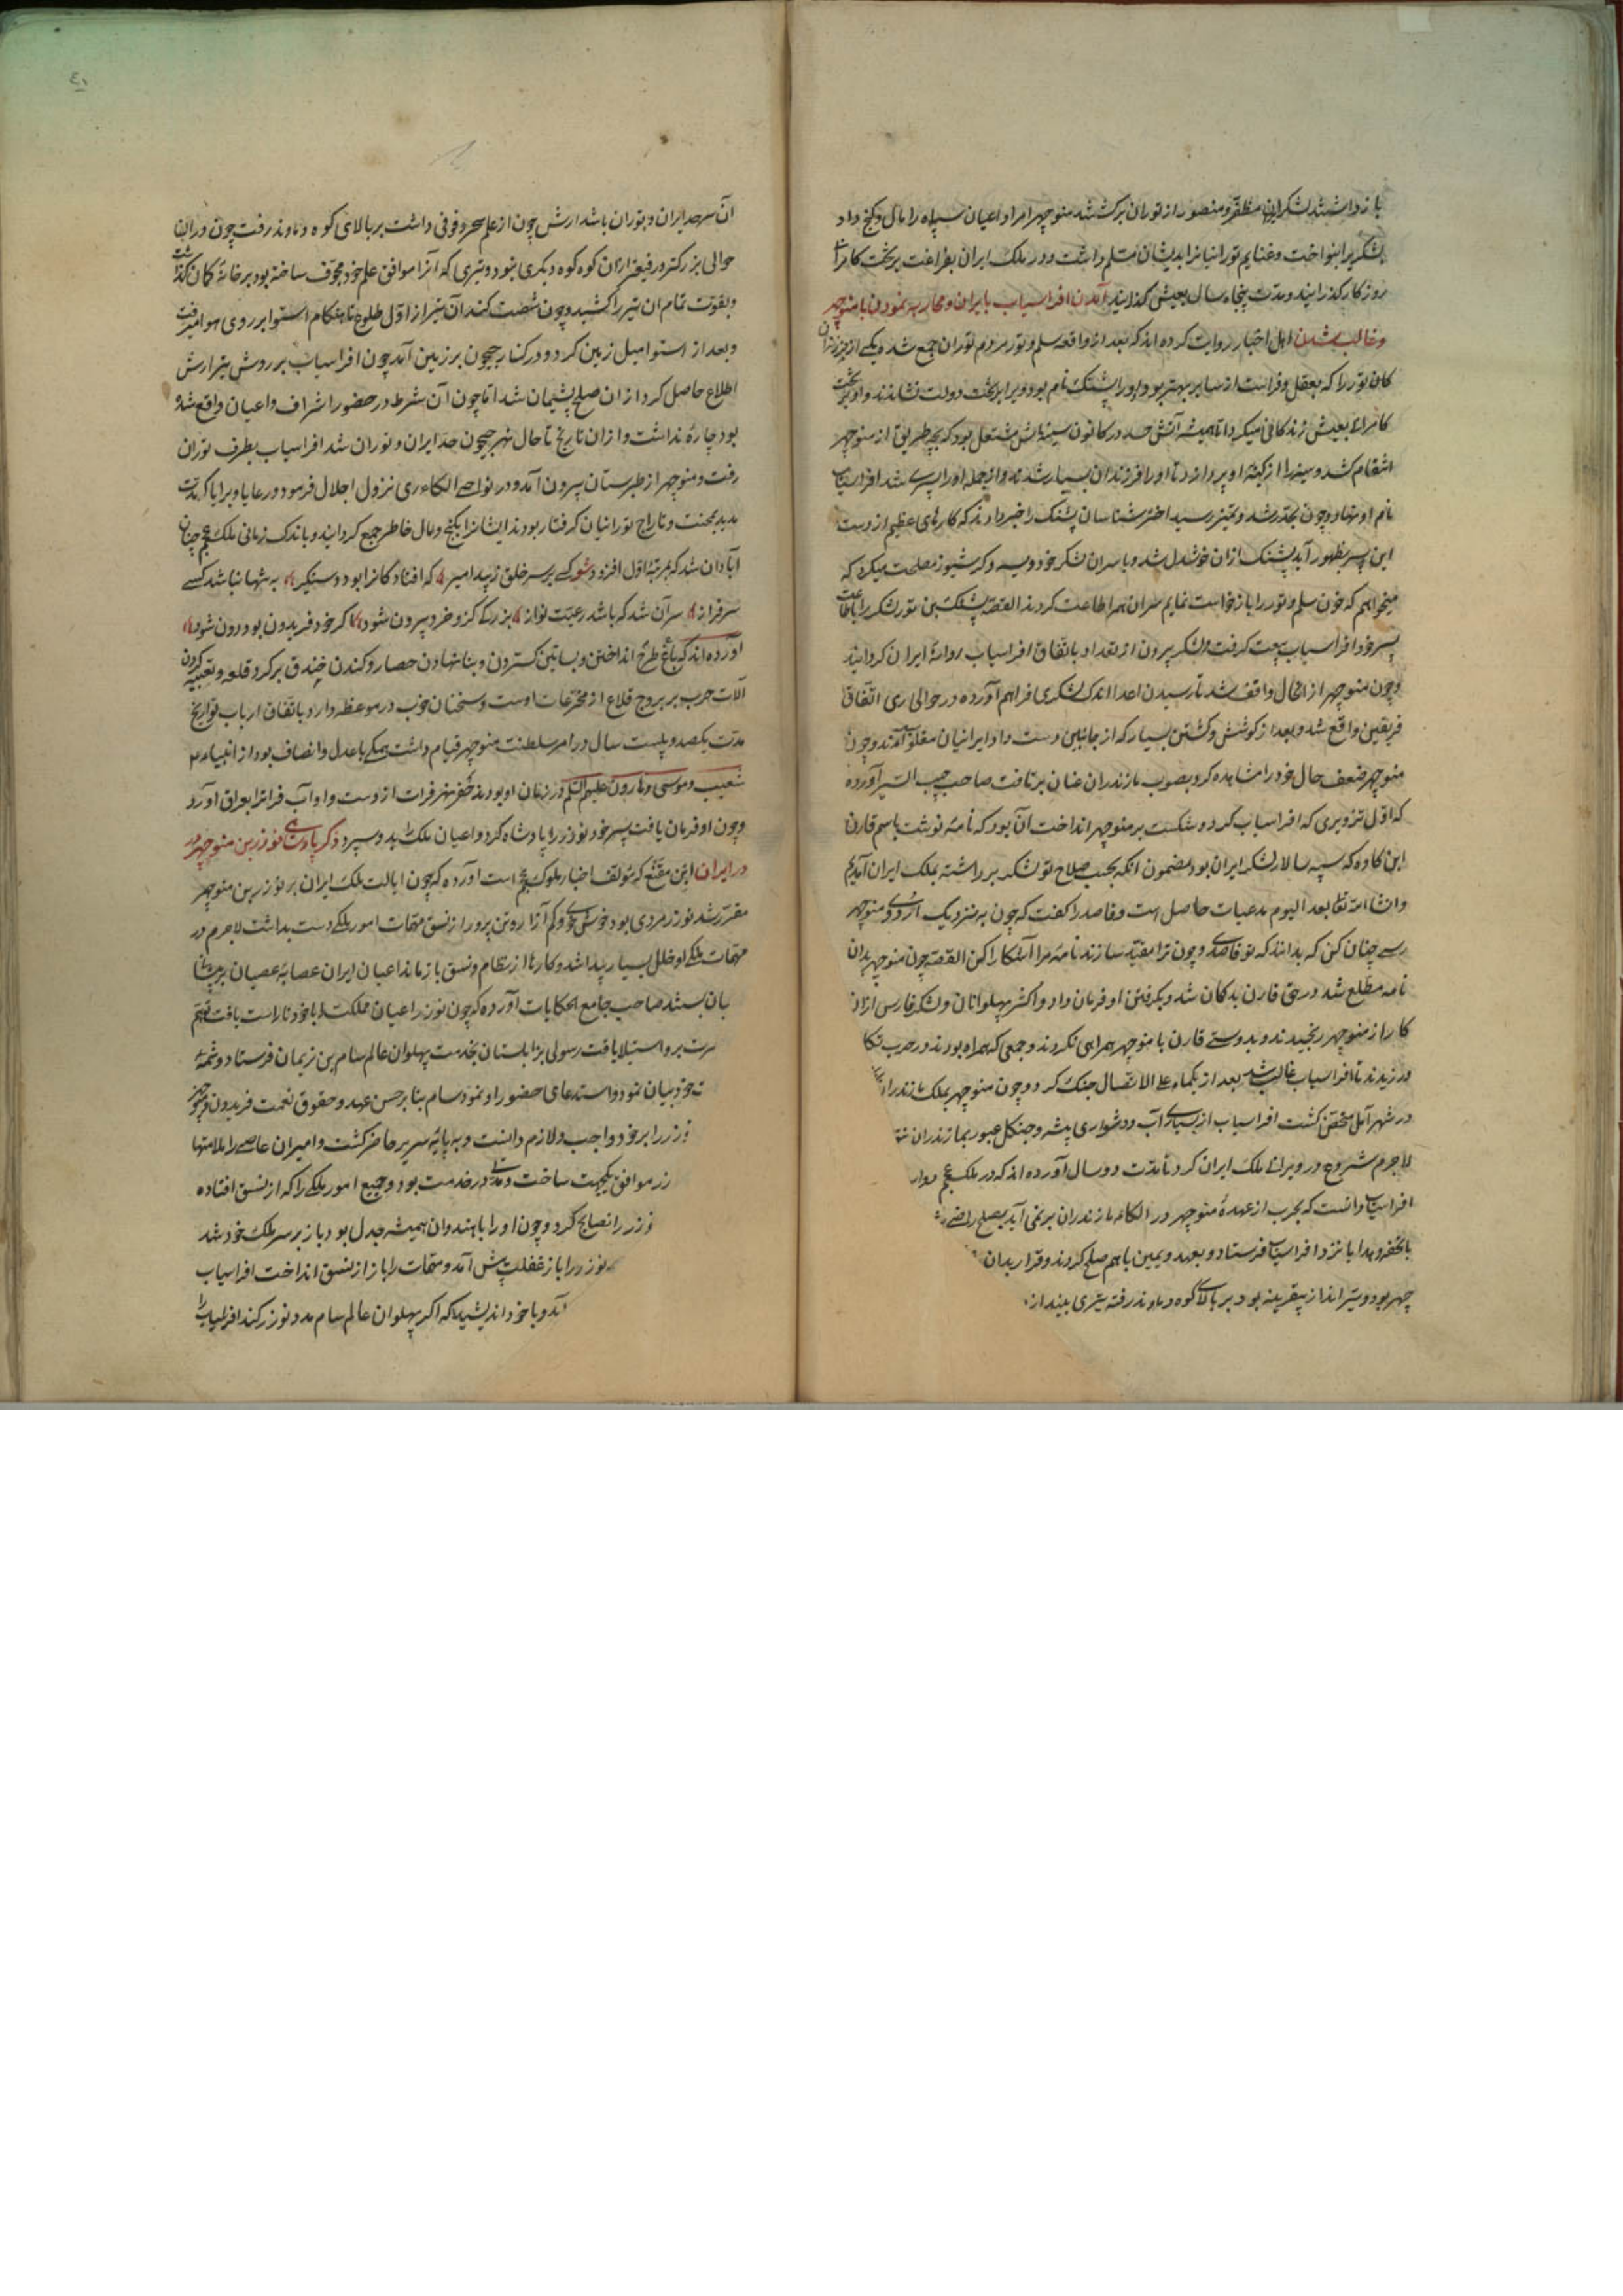 باز داشتند لشکر ایران مظفر و منصور از توران برگشتند منوچهر امرا و اعیان سپاه را مال و گنج داد
لشکریرا بنواخت و غنایم تورانیانرا بدیشان مسلم داشت و در ملک ایران بفراغت بر تخت کامرانی
روزگار گذرانید و مدت پنجاه سال بعیش گذرانید آمدن افراسیاب بایران و محاربه نمودن با منوچهر
و غالب شدن اهل اخبار روایت کرده اند که بعد از واقعه سلم و تور مردم توران جمع شد و یکی از فرزندان
را که بعقل و فراست از سایر بهتر بود و اورا پشنگ نام بود ویرا بر تخت دولت نشاندند و او بر تخت
کامرانی بعیش زندگانی میکرد اما همیشه آتش حسد در کانون سینه اش مشتعل بود که بچه طریق از منوچهر
انتقام کشد و سینه را از کینه او پردازد تا اورا فرزندان بسیار شدند و از جمله اورا پسری شد افراسیاب
نام او نهاد و چون بحد رشد و تمیز رسید اختر شناسان پشنگ را خبر دادند که کارهای عظیم از دست
این پسر بظهور آید پشنگ ازان خوشدل شد و با سران لشکر خود ویسه و گرشیوز مصلحت میکرد که
میخواهم که خون سلم و تور را بازخواست نمایم سران همه اطاعت کردند القصه پشنگ بن تور لشکر را باطاعت
پسر خود افراسیاب بیعت گرفت و لشکر بیرون از تعداد باتفاق افراسیاب روانه ایران گردانید
و چون منوچهر از انحال واقف شد تا رسیدن اعدا اندک لشکری فراهم آورده در حوالی ری اتفاق
فریقین واقع شد و بعد از کوشش و کشتن بسیار که از جانبین دست داد ایرانیان مغلوب آمدند و چون
منوچهر ضعف حال خود را مشاهده کرد بصوب مازندران عنان برتافت صاحب حبیب السیر آورده
که اول تزویری که افراسیاب کرد و شکست بر منوچهر انداخت آن بود که نامه نوشت باسم قارن
ابن کاوه که سپه سالار لشکر ایران بود مضمون انکه بحسب صلاح تو لشکر برداشته بملک ایران آمدیم
و انشا الله تعا بعد الیوم مدعیات حاصل است و قاصد را گفت که چون به نزدیک اردوی منوچهر
رسی چنان کن که بدانند که تو قاصدی و چون ترا مقید سازند نامه مرا آشکارا کن القصه چون منوچهر بدان
نامه مطلع شد در حق قارن بدکمان شد و بگرفتن او فرمان داد و اکثر پهلوانان و لشکر فارس ازان
کار از منوچهر رنجیدند و بدوستی قارن با منوچهر همراهی نکردند و جمعی که همراه بودند در حرب تکا
ورزیدند تا افراسیاب غالب شد بعد از یکماه علی الاتصال جنگ کرد و چون منوچهر بملک مازندران
در شهر آمل متحصن گشت افراسیاب از بسیاری آب و دشواری بیشه و جنگل عبور بمازندران
لاجرم شروع در ویرانی ملک ایران کرد تا مدت دو سال آورده اند که در ملک عجم
افراسیاب دانست که بحرب از عهده منوچهر در الکاء مازندران برنمی آید بصلح راضی
با تحفه و هدایا نزد افراسیاب فرستاد و بعهد و یمین باهم صلح کردند و قرار بدان
چهر بود و تیر انداز بیقرینه بود بر بالای کوه دماوند رفته تیری بیندازد
آن سرحد ایران و توران باشد ارش چون از علم سحر وقوفی داشت بر بالای کوه دماوند رفت چون در ان
حوالی بزرگتر و رفیعتر ازان کوه کوه دیگری نبود و تیری که آنرا موافق علم خود مجوف ساخته بود بر خانه کمان گذاشت
و بقوت تمام ان تیر را کشید و چون شصت کند آن تیر از اول طلوع تا هنگام استوا بر روی هوا میرفت
و بعد از استوا میل زمین کرد و در کنار جیحون بر زمین آمد چون افراسیاب بر روش تیر ارش
اطلاع حاصل کرد از ان صلح پشیمان شد اما چون آن شرط در حضور اشراف و اعیان واقع شده
بود چاره نداشت و از ان تاریخ تا حال نهر جیحون حد ایران و توران شد افراسیاب بطرف توران
رفت و منوچهر از طبرستان بیرون آمد و در نواحی الکاء ری نزول اجلال فرمود و رعایا و برایا که مدت
مدید بمحنت و تاراج تورانیان گرفتار بودند ایشانرا بگنج و مال خاطر جمع گردانید و باندک زمانی ملک عجم چنان
آبادان شد که بمرتبه اول افزود شعر کسی بر سر خلق زیبد امیر که افتادگانرا بود دستگیر به تنها نباشد کسی
سرفراز سر آن شد که باشد رعیت نواز بزرگی کزو خرد بیرون شود اگر خود فریدون بود دون شود
آورده اند که باغ طرح انداختن و بساتین گستردن و بنا نهادن حصار و کندن خندق بر گرد قلعه و تعبیه کردن
آلات حرب بر بروج قلاع از مخترعات اوست و سخنان خوب در موعظه دارد باتفاق ارباب تواریخ
مدت یکصد و بیست سال در امر سلطنت منوچهر قیام داشت همگی با عدل و انصاف بود از انبیاء
شعیب و موسی و هارون علیهم السلام در زمان او بودند حفر نهر فرات از دست و او آب فراترا بعراق آورد
و چون او فرمان یافت پسر خود نوذر را پادشاه کرد و اعیان ملک بدو سپرد ذکر پادشاهی نوذر بن منوچهر
در ایران ابن مقنع که مؤلف اخبار ملوک عجم است آورده که چون ایالت ملک ایران بر نوذر بن منوچهر
مقرر شد نوذر مردی بود خوش خوی و کم آزار و تن پرور از نسق مهمات امور ملکی دست بداشت لاجرم در
مهمات ملکی او خلل بسیار پیدا شد و کارها از نظام و نسق باز ماند اعیان ایران عصابه عصیان بر پیشانی
بان بستند صاحب جامع الحکایات آورده که چون نوذر اعیان مملکت را با خود ناراست یافت
برو استیلا یافت رسولی بزابلستان بخدمت پهلوان عالم سام بن نریمان فرستاد و شمه
خود بیان نمود و استدعای حضور او نمود سام بنا بر حسن عهد و حقوق نعمت فریدون و منوچهر
نوذر را بر خود واجب و لازم دانست و به پایه سریر حاضر گشت و امیران عاصی را ملامتها
موافق یکجهت ساخت و مدتی در خدمت بود و جمیع امور ملکی را که از نسق افتاده
نوذر را نصایح کرد و چون اورا با هندوان همیشه جدل بود باز بر سر ملک خود شد
نوذر را باز غفلت پیش آمد و مهمات را باز از نسق انداخت افراسیاب
آمد و با خود اندیشید که اگر پهلوان عالم سام مدد نوذر کند افراسیاب را